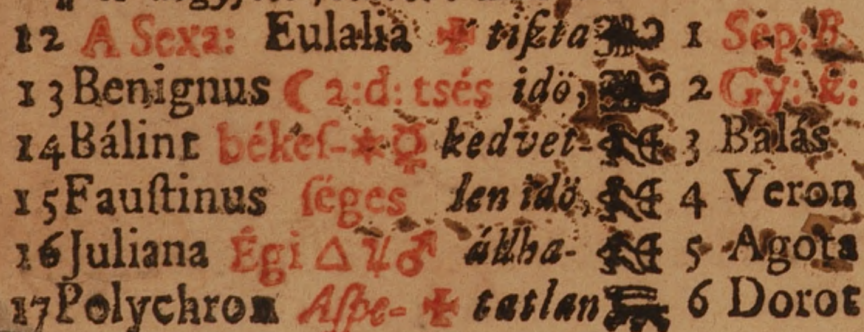 12 A Sexa: Eulalia ✠ tiszta 1 Sép: B.
13 Benignus ☾ 2: d: tsés idö, 2 Gy: &:
14 Bálint békeſ- ✶ ☿ kedvet- 3 Balás
15 Fauſtinus ſéges len idö, 4 Veron
16 Juliana Égi △ ♃ ♂ állha- 5 Agota
17 Polychron Aſpe- ✠ tatlan 6 Dorot